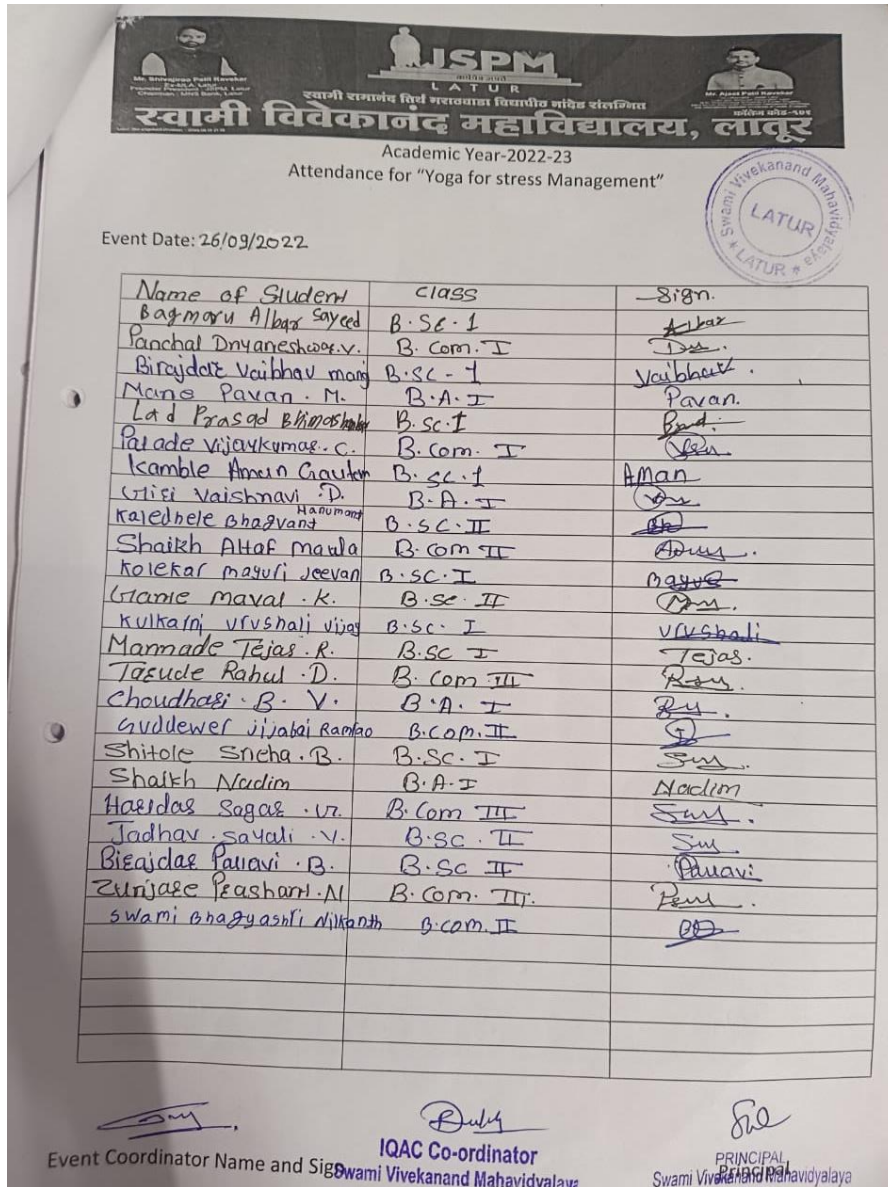 JSPM
LATUR
Mr. Shivajirao Patil Kavekar
Ex-MLA, Latur
Mr. Ajeet Patil Kavekar
स्वामी रामानंद तिर्थ मराठवाडा विद्यापीठ नांदेड संलग्नित
कॉलेज कोड-
स्वामी विवेकानंद महाविद्यालय, लातूर
Academic Year-2022-23
Attendance for "Yoga for stress Management"
Swami Vivekanand Mahavidyalaya
LATUR
* LATUR *
Event Date: 26/09/2022
Name of Student Class Sign.
Bagmaru Albar Sayeed B.Sc.1 Albar
Panchal Dnyaneshwar.V. B.Com.I
Birajdar Vaibhav manoj B.SC-1 Vaibhav.
Mane Pavan.M. B.A.I Pavan.
Lad Prasad B.Sc.I
Palade Vijaykumar.C. B.Com.I
Kamble Aman Gautam B.Sc.1 AMan
Giri Vaishnavi.D. B.A.I
Kaledhele Bhagvant Hanumant B.SC.II
Shaikh Altaf Maula B.Com II
Kolekar mayuri Jeevan B.SC.I
Game Maval.K. B.Sc.II
Kulkarni vrushali vijay B.SC.I vrushali
Mannade Tejas.R. B.SC I Tejas.
Tasude Rahul.D. B.Com III
Choudhari.B.V. B.A.I
Guddewer jijabai Ramrao B.Com.II
Shitole Sneha.B. B.Sc.I
Shaikh Nadim B.A.I Nadim
Haridas Sagar. B.Com III
Jadhav.Sayali.V. B.SC.II
Birajdar Pallavi.B. B.SC II Pallavi
Zunjare Prashant.N B.Com.III.
Swami Bhagyashri Nilkanth B.com.II
Event Coordinator Name and Sign
IQAC Co-ordinator
Swami Vivekanand Mahavidyalaya
PRINCIPAL
Principal
Swami Vivekanand Mahavidyalaya